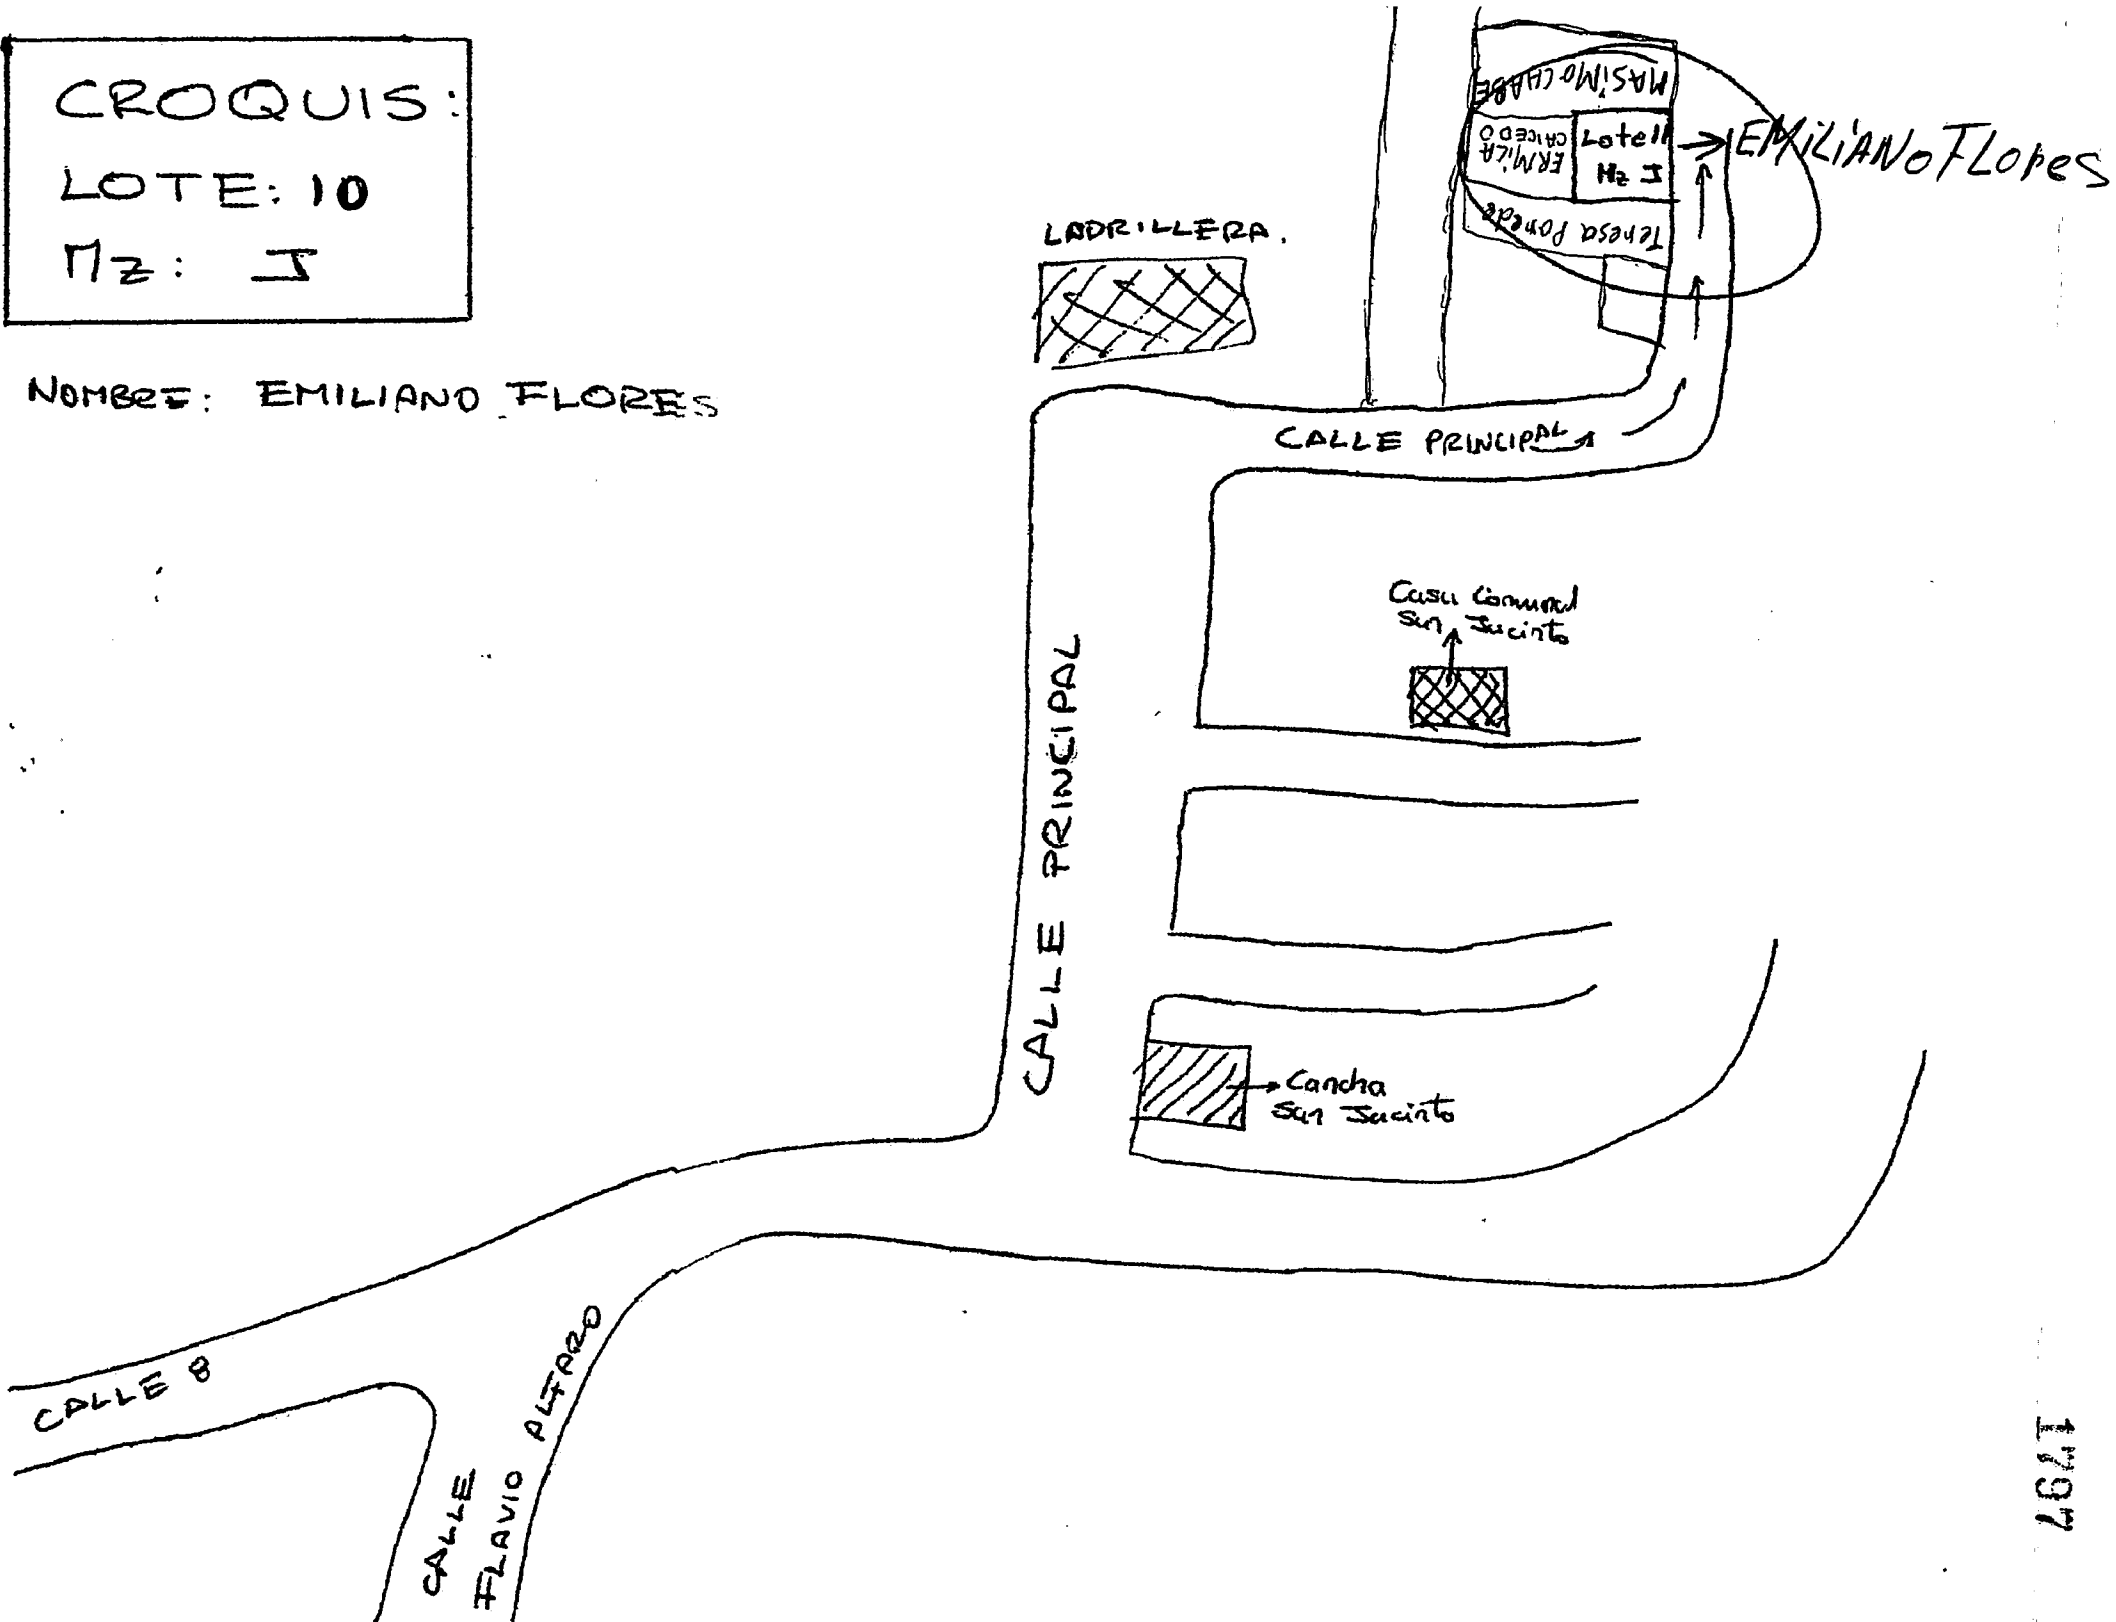 CROQUIS:
LOTE: 10
Mz: J
NOMBRE: EMILIANO FLORES
MASIMO CHABE
ERMILA
CAICEDO
Lote 11
Mz J
EMILIANO FLORES
Teresa
LADRILLERA.
CALLE PRINCIPAL
Casa Comunal
San Jacinto
CALLE PRINCIPAL
Cancha
San Jacinto
CALLE 8
CALLE
FLAVIO ALFARO
1797